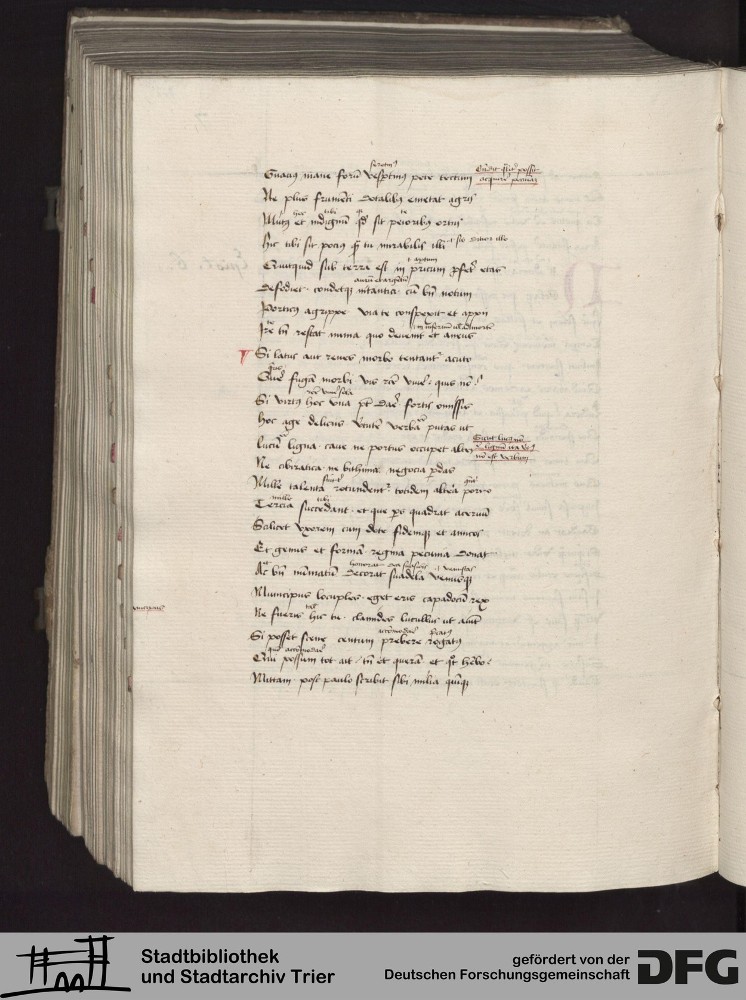 Gnauus mane forum vespertinus pete tectum
Ne plus frumenti dotalibus emetat agris
Mutus et indignum quod sit peioribus ortus
hic tibi sit pocius quam tu mirabilis illi
Quitquid sub terra est in apricum proferet etas
Defodiet condetque nitantia cum bene notum
Porticus agrippe via te conspexit et appii
Ire tamen restat numa quo deuenit et ancus
Si latus aut renes morbo tentantur acuto
Quere fugam morbi vis recte viuere quis non
Si virtus hoc vna potest dare fortis omissis
hoc age deliciis virtutem verba putas ut
lucum ligna caue ne portus occupet alter
Ne cibiratica ne bithina negocia perdas
Mille talenta rotundentur totidem altera porro
Tercia succedant et que pars quadrat aceruum
Scilicet vxorem cum dote fidemque et amicos
Et genus et formam regina pecunia donat
Ac bene nummatum decorat suadela venusque
Mancipiis locuples eget eris capadocum rex
Ne fueris hic tu clamides lucullus ut aiunt
Si posset scene centum prebere rogatus
Qui possum tot ait tamen et queram et quot habebo
Mittam post paulo scribit sibi milia quinque
Stadtbibliothek
und Stadtarchiv Trier
gefördert von der
Deutschen Forschungsgemeinschaft
DFG